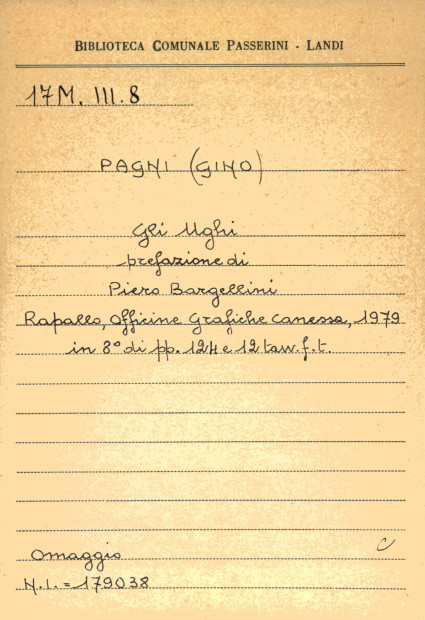 BIBLIOTECA COMUNALE PASSERINI - LANDI
17M. III. 8
PAGNI (GINO)
Gli Ughi
prefazione di
Piero Bargellini
Rapallo, Officine Grafiche Canessa, 1979
in 8° di pp. 124 e 12 tavv. f. t.
C
Omaggio
N. I. = 179038